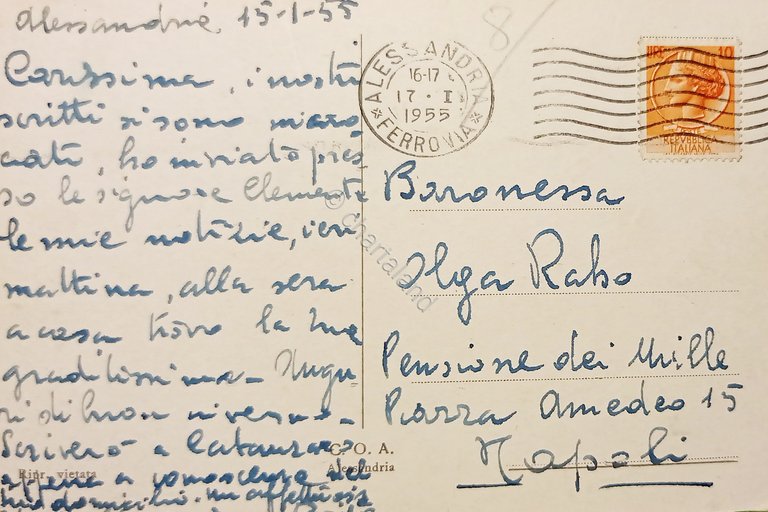 Alessandria, 15-1-55
Carissima, i nostri
scritti si sono incro
ciati, ho inviato pres
so le signore Clemente
le mie notizie, ieri
mattina, alla sera
a casa trovo la tua
graditissima - Augu
ri di buon inverno -
Scriverò a Catanzaro
appena a conoscenza del
tuo domicilio. un affettuosis
8
ALESSANDRIA
16-17
17 · I
1955
* FERROVIA *
10
REPVBBLICA
ITALIANA
Baronessa
Olga Raho
Pensione dei Mille
Piazza Amedeo 15
Napoli
C. O. A.
Alessandria
Ripr. vietata
© Chartaland